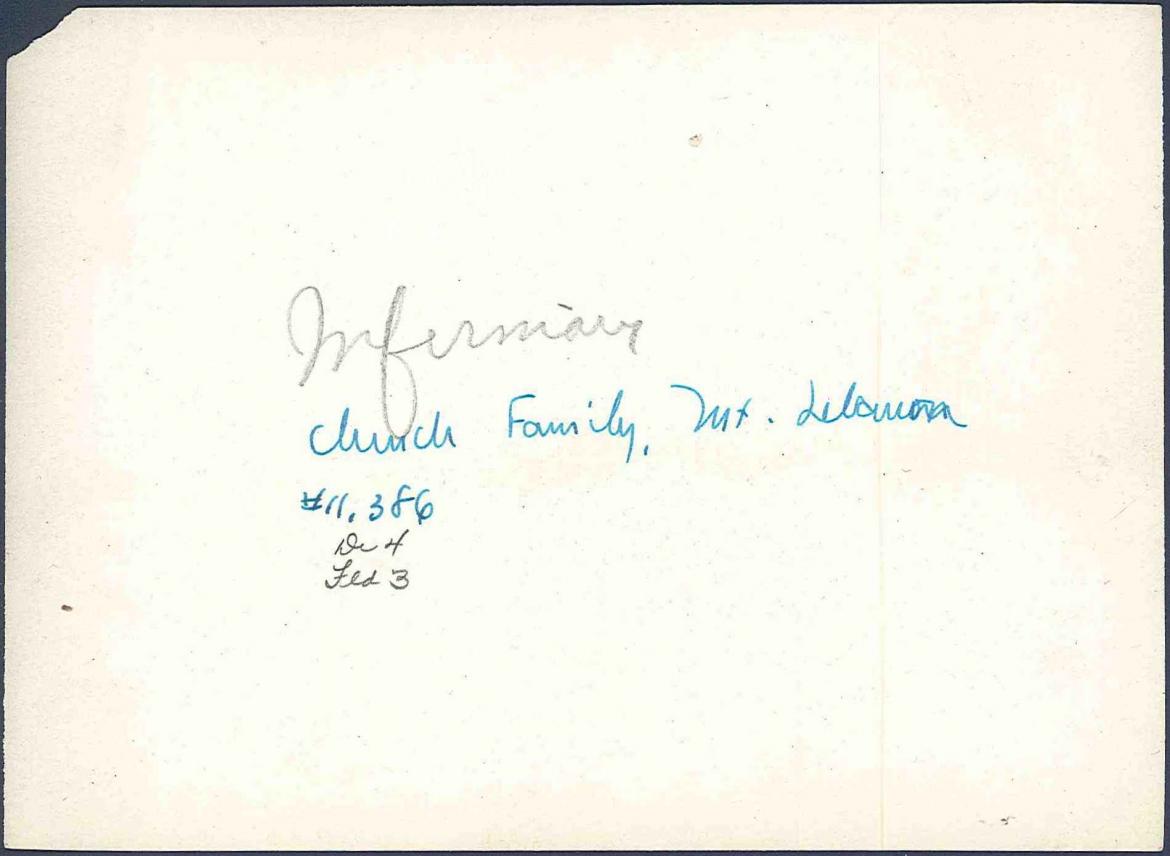 Infermiary
Church Family, Mt. Lebanon
#11,386
Dr 4
Fld 3